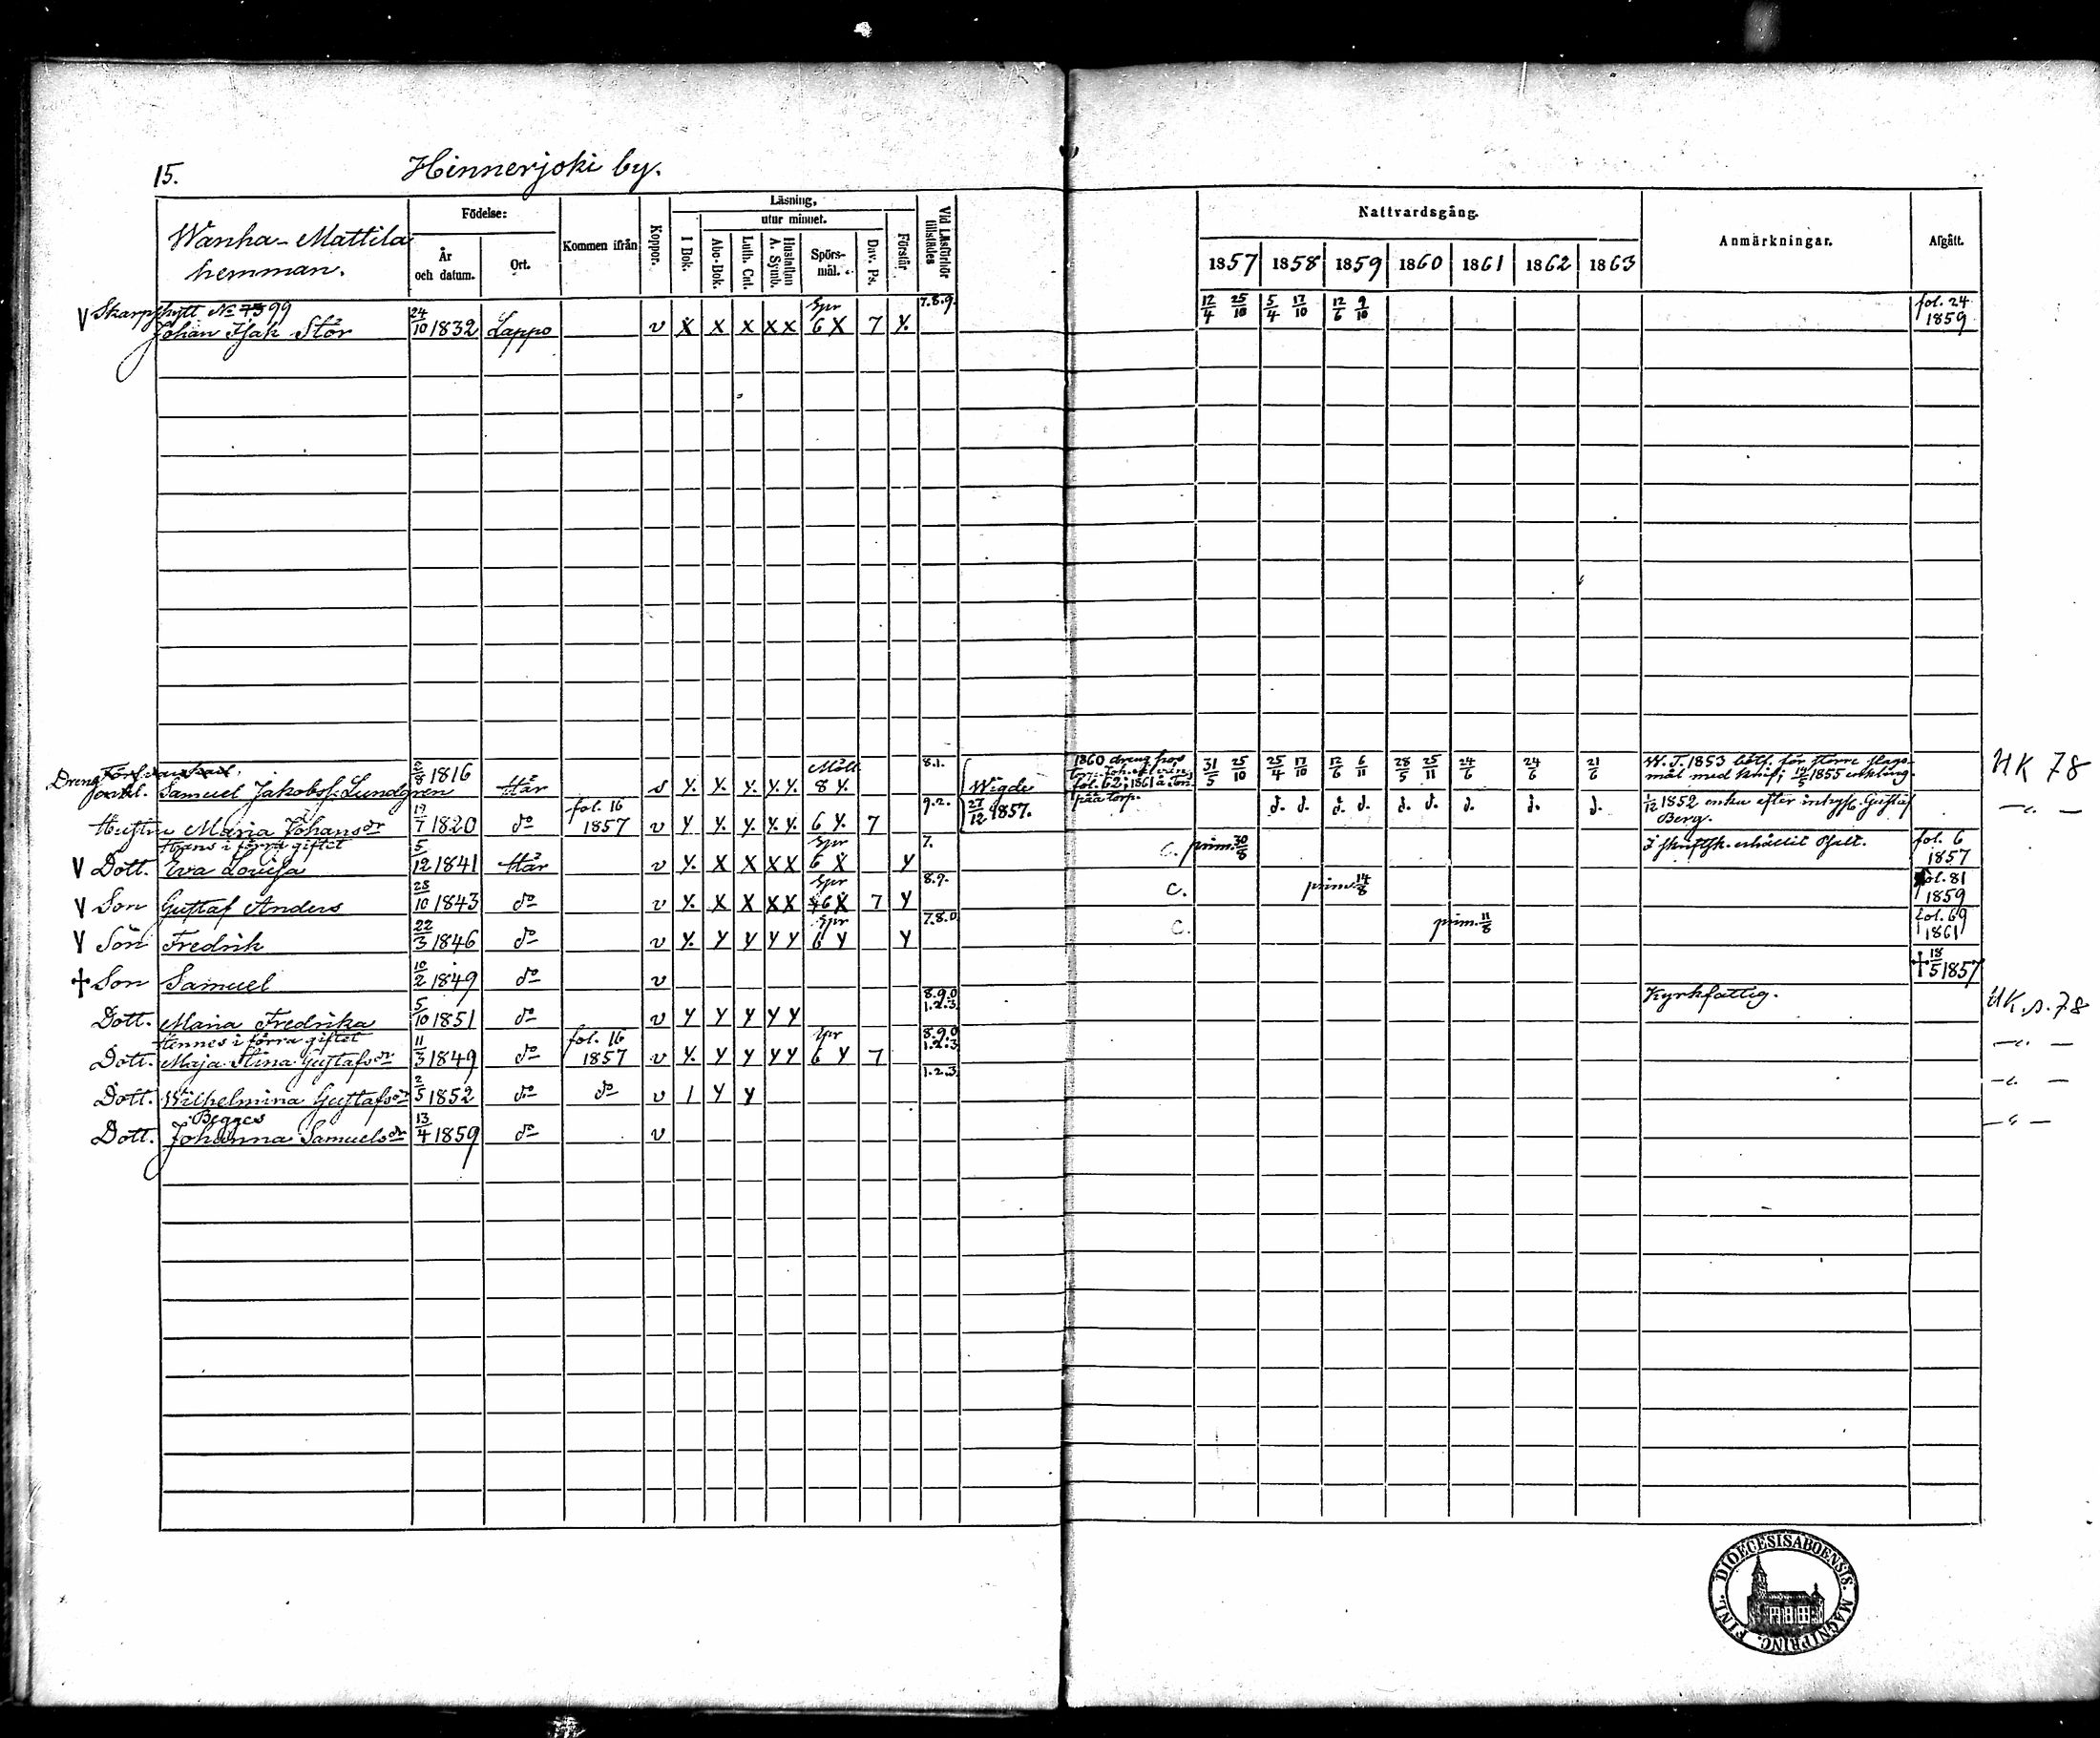 15. Hinnerjoki by.
Wanha-Mattila hemman.
Födelse:
År och datum.
Ort.
Kommen ifrån
Koppor.
Läsning,
I Bok.
utur minnet.
Abc-Bok.
Luth. Cat.
Hustaflan A. Symb.
Spörsmål.
Dav. Ps.
Förstår
Vid Läsförhör tillstädes
Nattvardsgång.
1857 1858 1859 1860 1861 1862 1863
Anmärkningar.
Afgått.
V Skarpskytt No 73 99 Spr 7.8.9. fol. 24
Johan Isak Stör 24/10 1832 Lappo v X X X X X 6 X 7 Y. 12/4 25/10 5/4 17/10 12/6 9/10 1859
Dreng Samuel Jakobss. Lundgren 2/8 1816 Här s Y. Y. Y. Y. Y. 8 Y. 8.1. Wigde 31/5 25/10 25/4 17/10 12/6 6/11 28/5 25/11 24/6 24/6 21/6
1860 dreng hos
fol. 62; 1861 à
på torp.
W. T. 1853 böt. för större slagsmål med knif; 14/5 1855 enkling. HK 78
Hustru Maria Johansdr 19/7 1820 do fol. 16 1857 v Y Y. Y. Y. Y. 6 Y. 7 9.2. 27/12 1857. d. d. d. d. d. d. d. d. d.
1/12 1852 enka efter inhys. Gustaf Berg. —"—
Hans i förra giftet
V Dott. Eva Lovisa 5/12 1841 Här v Y. X X X X Spr 6 X Y 7. C. prim. 30/8 fol. 6 1857
V Son Gustaf Anders 28/10 1843 do v Y. X X X X Spr 6 X 7 Y 8.9. C. prim. 14/8 fol. 81 1859
V Son Fredrik 22/3 1846 do v Y. Y Y Y Y Spr 6 Y Y 7.8.0 C. prim. 11/8 fol. 69 1861
† Son Samuel 10/2 1849 do v † 18/5 1857
Dott. Maria Fredrika 5/10 1851 do v Y Y Y Y Y 8.9.0 1.2.3. Kyrkfattig. HK. s. 78
Hennes i förra giftet
Dott. Maja Stina Gustafsdr 11/3 1849 do fol. 16 1857 v Y. Y Y Y Y Spr 6 Y 7 8.9.0 1.2.3. —"—
Dott. Wilhelmina Gustafsdr 2/5 1852 do do v 1 Y Y 1.2.3. —"—
Begges
Dott. Johanna Samuelsdr 13/4 1859 do v —"—
DIOECESIS ABOENSIS. MAGNI PRINC. FINL.